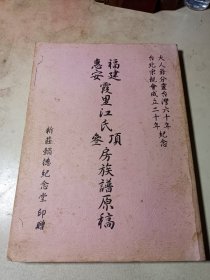 大人爺分靈台灣六十年紀念
台北宗親會成立二十年
福建
惠安
霞里江氏頂叁房族譜原稿
新莊錫德紀念堂印贈